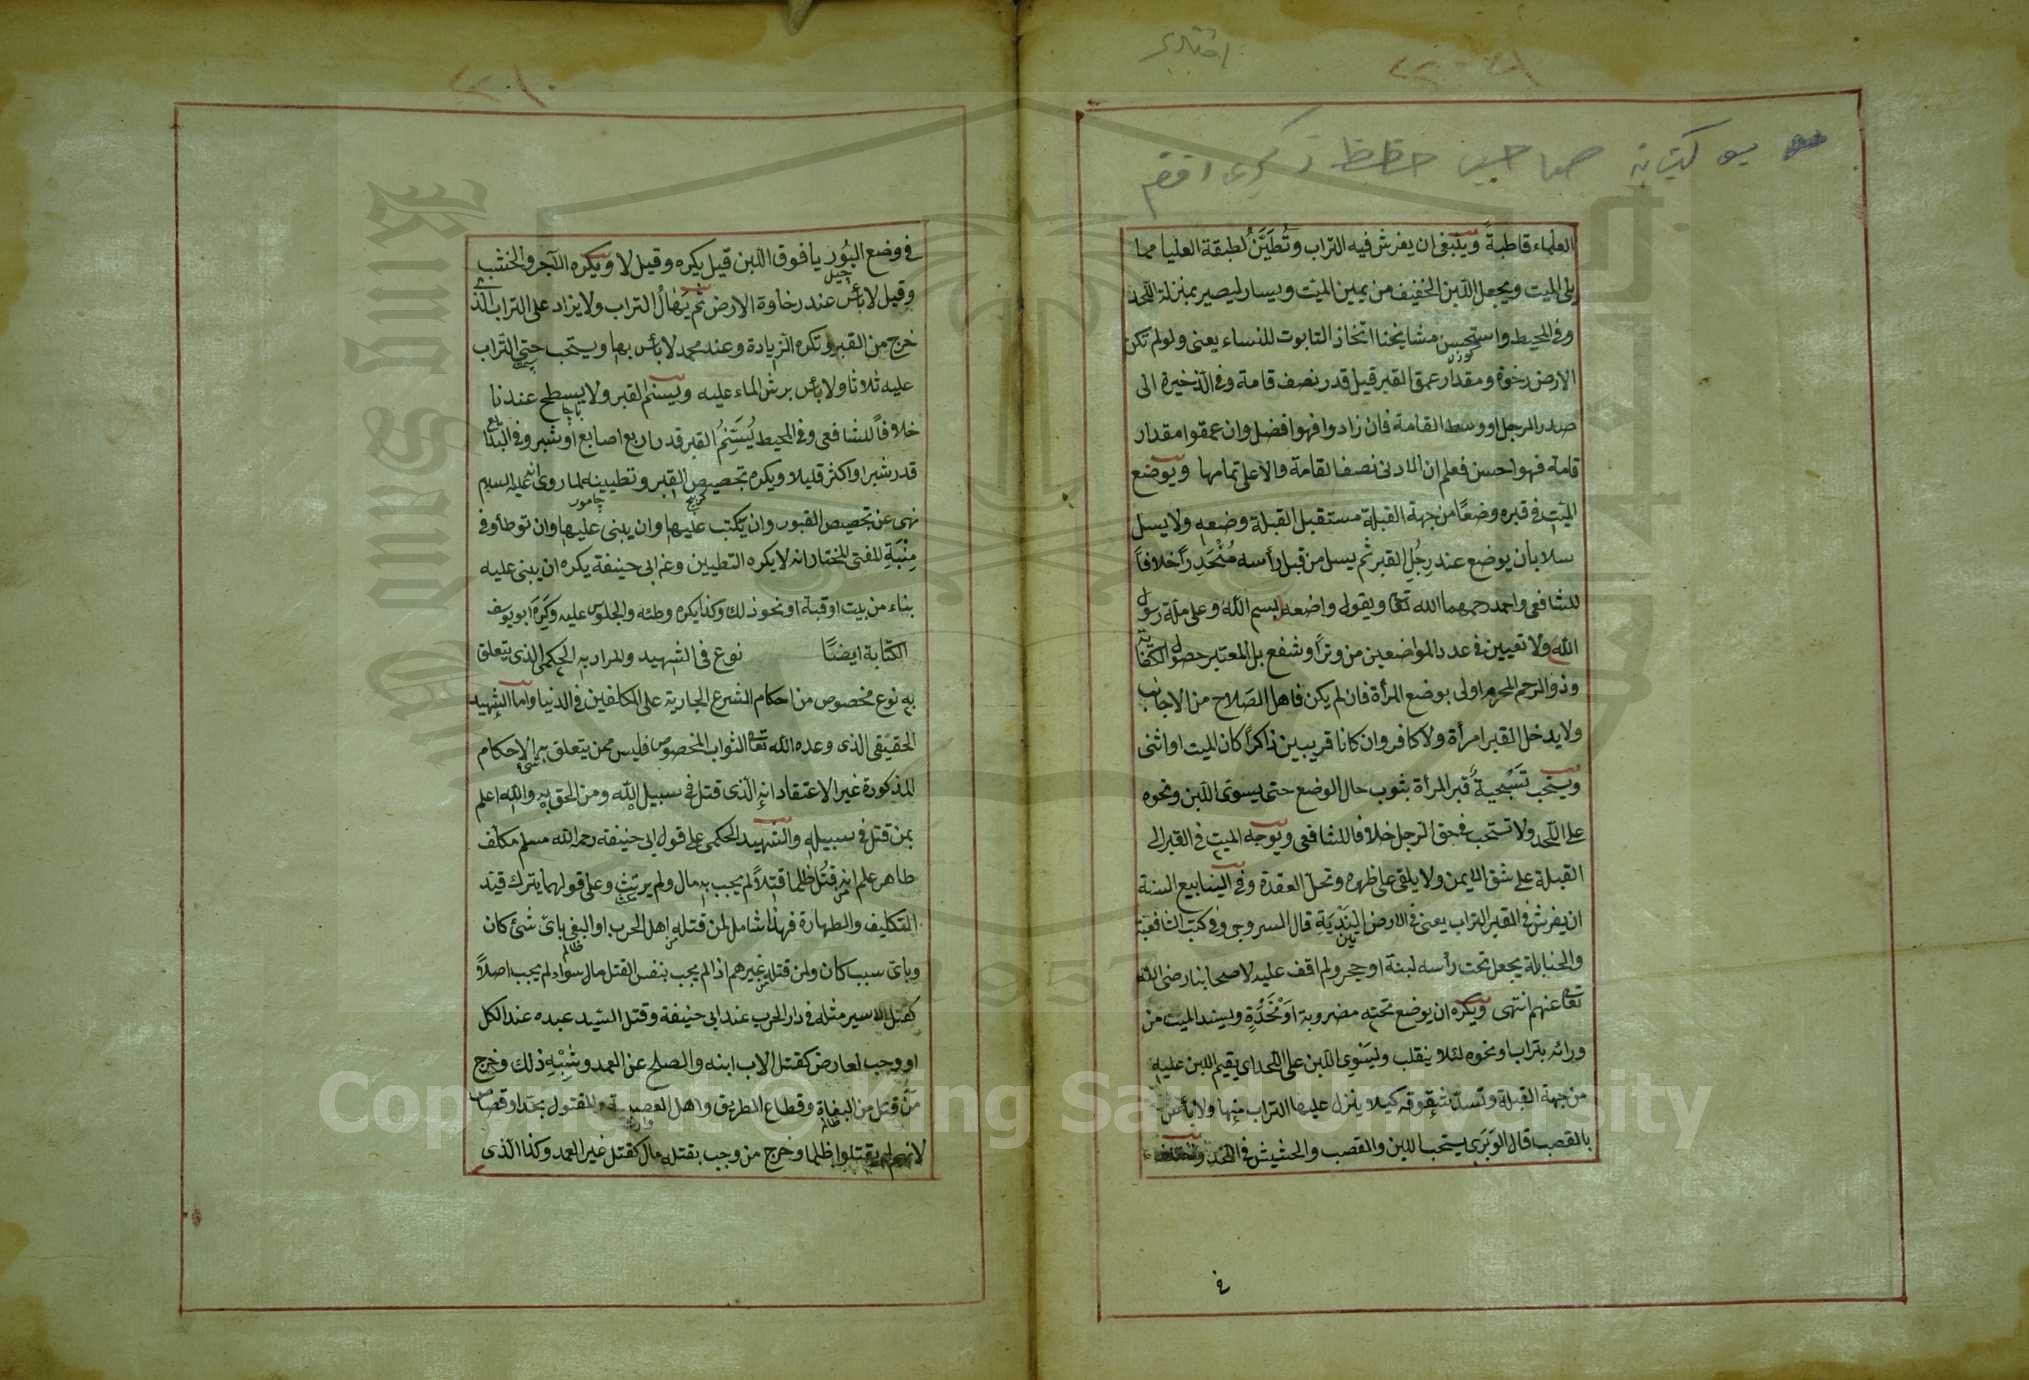 العلماء قاطبةً وينبغى ان يفرش فيه التراب وتُطَيَّنُ لطبقة العليا مما
يلى الميت ويجعل اللبن الخفيف من يمين الميت ويسار ليصير بمنزلة اللحد
وفى المحيط واستحسن مشايخنا اتخاذ التابوت للنساء يعنى ولو لم تكن
الارض رخوة ومقدار عمق القبر قيل قدر نصف قامة وفى الذخيرة الى
صدر الرجل او وسط القامة فان زادوا فهو افضل وان عمقوا مقدار
قامة فهو احسن فعلم ان الادنى نصف القامة والاعلى تمامها ويوضع
الميت فى قبره وضعًا من جهة القبلة مستقبل القبلة وضعه ولا يسل
سلا بأن يوضع عند رِجُلِ القبر ثم يسل من قبل رأسه مُنْحَدِرًا خلافاً
للشافعى واحمد رحمهما الله تعالى ويقول واضعه بسم الله وعلى ملة رسول
الله ولا تعيين فى عدد المواضعين من وترٍ او شفع بل المعتبر حصول الكفاية
وذو الرحم المحرم اولى بوضع المرأة فان لم يكن فاهل الصلاح من الاجانب
ولا يدخل القبر امرأة ولا كافر وان كانا قريبين ذاكراً كان الميت او انثى
ويستحب تَسْجِيةُ قبر المرأة بثوب حال الوضع حتى يسوى اللبن ونحوه
على اللحد ولا تستحب فى حق الرجل خلافا للشافعى ويوجه الميت فى القبر الى
القبلة على شق الايمن ولا يلقى على ظهره وتحل العقدة وفى الينابيع السنة
ان يفرش فى القبر التراب يعنى فى الارض النَدْيَةِ قال السروجى وفى كتب الشافعية
والحنابلة يجعل تحت رأسه لبنة او حجر ولم اقف عليه لاصحابنا رضى الله
تعالى عنهم انتهى ويكره ان يوضع تحته مضروبة او مُخَدَّةٍ ويسند الميت من
ورائه بتراب او نحوه لئلا ينقلب ويُسَوى اللبن على اللحد اى يقيم اللبن عليه
من جهة القبلة وتسد شقوقه كيلا ينزل عليها التراب منها ولا بأس
بالقصب قال الوَبَرى يستحب اللبن والقصب والحشيش فى اللحد
فى وضع البُور يا فوق اللبن قيل يكره وقيل لا ويكره الآجر والخشب
وقيل لا بأس عند رخاوة الارض ثم يُهالُ التراب ولا يزاد على التراب الذى
خرج من القبر وتكره الزيادة وعند محمد لا بأس بها ويستحب حثى التراب
عليه ثلاثا ولا بأس برش الماء عليه ويسنم القبر ولا يسطح عندنا
خلافاً للشافعى وفى المحيط يُسَنَّمُ القبر قدر اربع اصابع او شبر وفى البدائع
قدر شبر او اكثر قليلا ويكره تجصيص القبر وتطيينه لما روى انه عليه السلام
نهى عن تجصيص القبور وان يكتب عليها وان يبنى عليها وان توطأ وفى
مِنْيَةِ المفتى المختار انه لا يكره التطيين وعن ابى حنيفة يكره ان يبنى عليه
بناء من بيت او قبة او نحو ذلك وكذا يكره وطئه والجلوس عليه وكَرِهَ ابو يوسف
الكتابة ايضًا نوع فى الشهيد والمراد به الحكمى الذى يتعلق
به نوع مخصوص من احكام الشرع الجارية على المكلفين فى الدنيا واما الشهيد
الحقيقى الذى وعده الله تعالى الثواب المخصوص فليس ممن يتعلق به شئ الاحكام
المذكورة غير الاعتقاد انه الذى قتل فى سبيل الله ومن الحق به والله اعلم
بمن قتل فى سبيله والشهيد الحكمى على قول ابى حنيفة رحمه الله مسلم مكلف
طاهر علم انه قُتل ظلما قتلاً لم يجب به مال ولم يرتث وعلى قولهما يترك قيد
التكليف والطهارة فهذا شامل لمن قتله اهل الحرب او البغى باى شئ كان
وباى سبب كان ولمن قتله غيرهم اذا لم يجب بنفس القتل مال سواء لم يجب اصلاً
كقتل الاسير مثله فى دار الحرب عند ابى حنيفة وقتل السيد عبده عند الكل
او وجب لعارض كقتل الاب ابنه والصلح عن العمد وشِبْهِ ذلك وخرج
مَن قتل من البغاة وقطاع الطريق واهل العصبية والمقتول بحد او قصاص
لانهم لم يقتلوا ظلما وخرج من وجب بقتله مال كقتل غير العمد وكذا الذى
Copyright © King Saud University